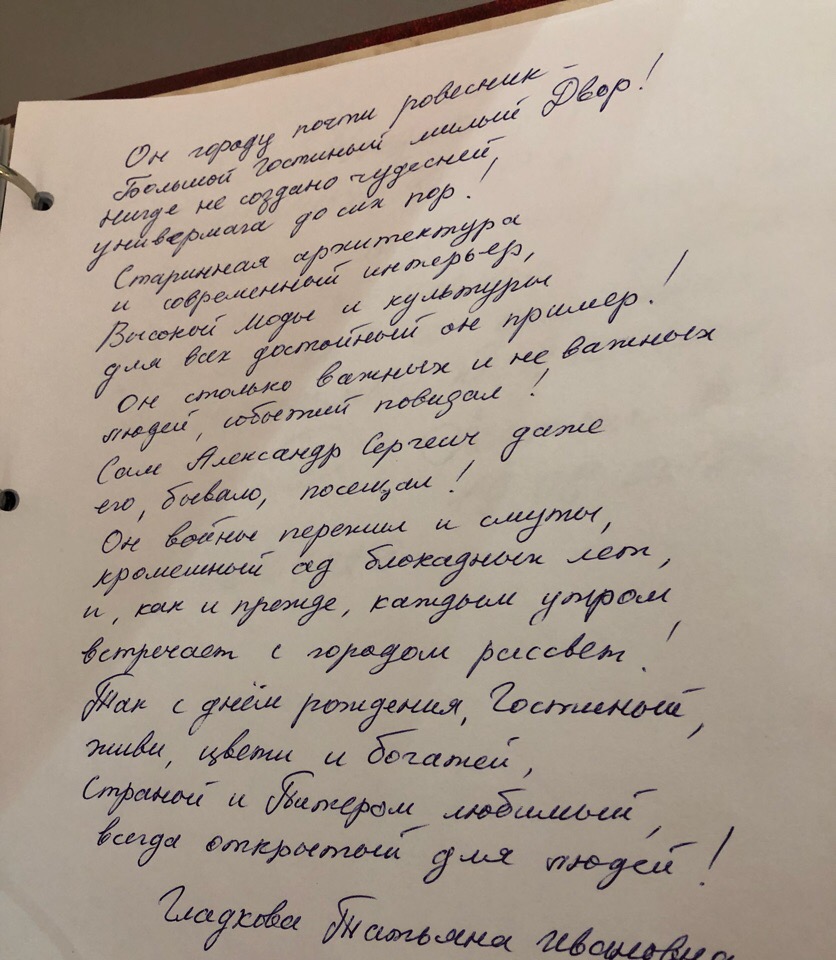 Он городу почти ровесник –
Большой Гостиный милый Двор!
Нигде не создано чудесней,
универмага до сих пор!
Старинная архитектура
и современный интерьер,
Высокой моды и культуры
для всех достойный он пример!
Он столько важных и не важных
людей, событий повидал!
Сам Александр Сергеич даже
его, бывало, посещал!
Он войны пережил и смуты,
кромешный ад блокадных лет,
и, как и прежде, каждым утром
встречает с городом рассвет!
Так с днём рождения, Гостиный,
живи, цвети и богатей,
Страной и Питером любимый,
всегда открытый для людей!
Гладкова Татьяна Ивановна